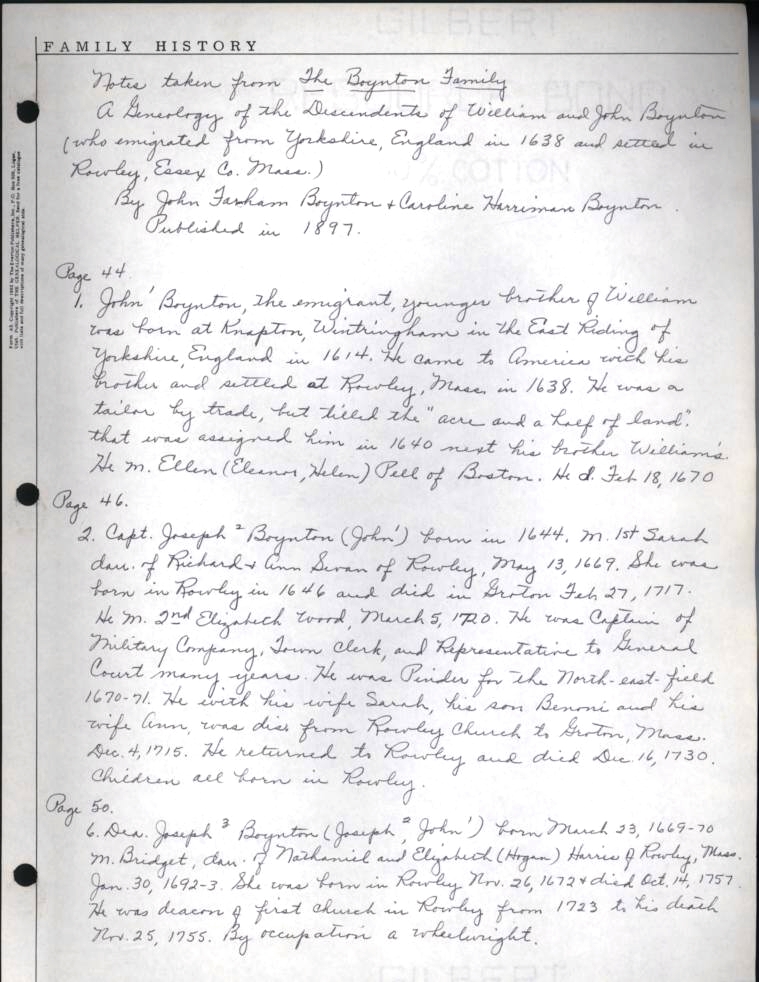 GILBERT
FAMILY HISTORY
BOND
COTTON
Notes taken from The Boynton Family
A Geneology of the Descendents of William and John Boynton
(who emigrated from Yorkshire, England in 1638 and settled in
Rowley, Essex Co. Mass.)
By John Farham Boynton & Caroline Harriman Boynton.
Published in 1897.
Page 44
1. John¹ Boynton, the emigrant, younger brother of William
was born at Knapton, Wintringham in the East Riding of
Yorkshire, England in 1614. He came to America with his
brother and settled at Rowley, Mass. in 1638. He was a
tailor by trade, but tilled the "acre and a half of land".
that was assigned him in 1640 next his brother William's.
He m. Ellen (Eleanor, Helen) Pell of Boston. He d. Feb 18, 1670
Page 46.
2. Capt. Joseph² Boynton (John¹) born in 1644. m. 1st Sarah
dau. of Richard & Ann Swan of Rowley, May 13, 1669. She was
born in Rowley in 1646 and died in Groton Feb 27, 1717.
He m. 2nd Elizabeth Wood, March 5, 1720. He was Captain of
Military Company, Town Clerk, and Representative to General
Court many years. He was Pinder for the North-east-field
1670-71. He with his wife Sarah, his son Benoni and his
wife Ann, was dis. from Rowley Church to Groton, Mass.
Dec. 4, 1715. He returned to Rowley and died Dec. 16, 1730.
Children all born in Rowley.
Page 50.
6. Dea. Joseph³ Boynton (Joseph², John¹) born March 23, 1669-70
m. Bridget, dau. of Nathaniel and Elizabeth (Hogan) Harris of Rowley, Mass.
Jan. 30, 1692-3. She was born in Rowley Nov. 26, 1672 & died Oct. 14, 1757.
He was deacon of first church in Rowley from 1723 to his death
Nov. 25, 1755. By occupation a wheelwright.
GILBERT